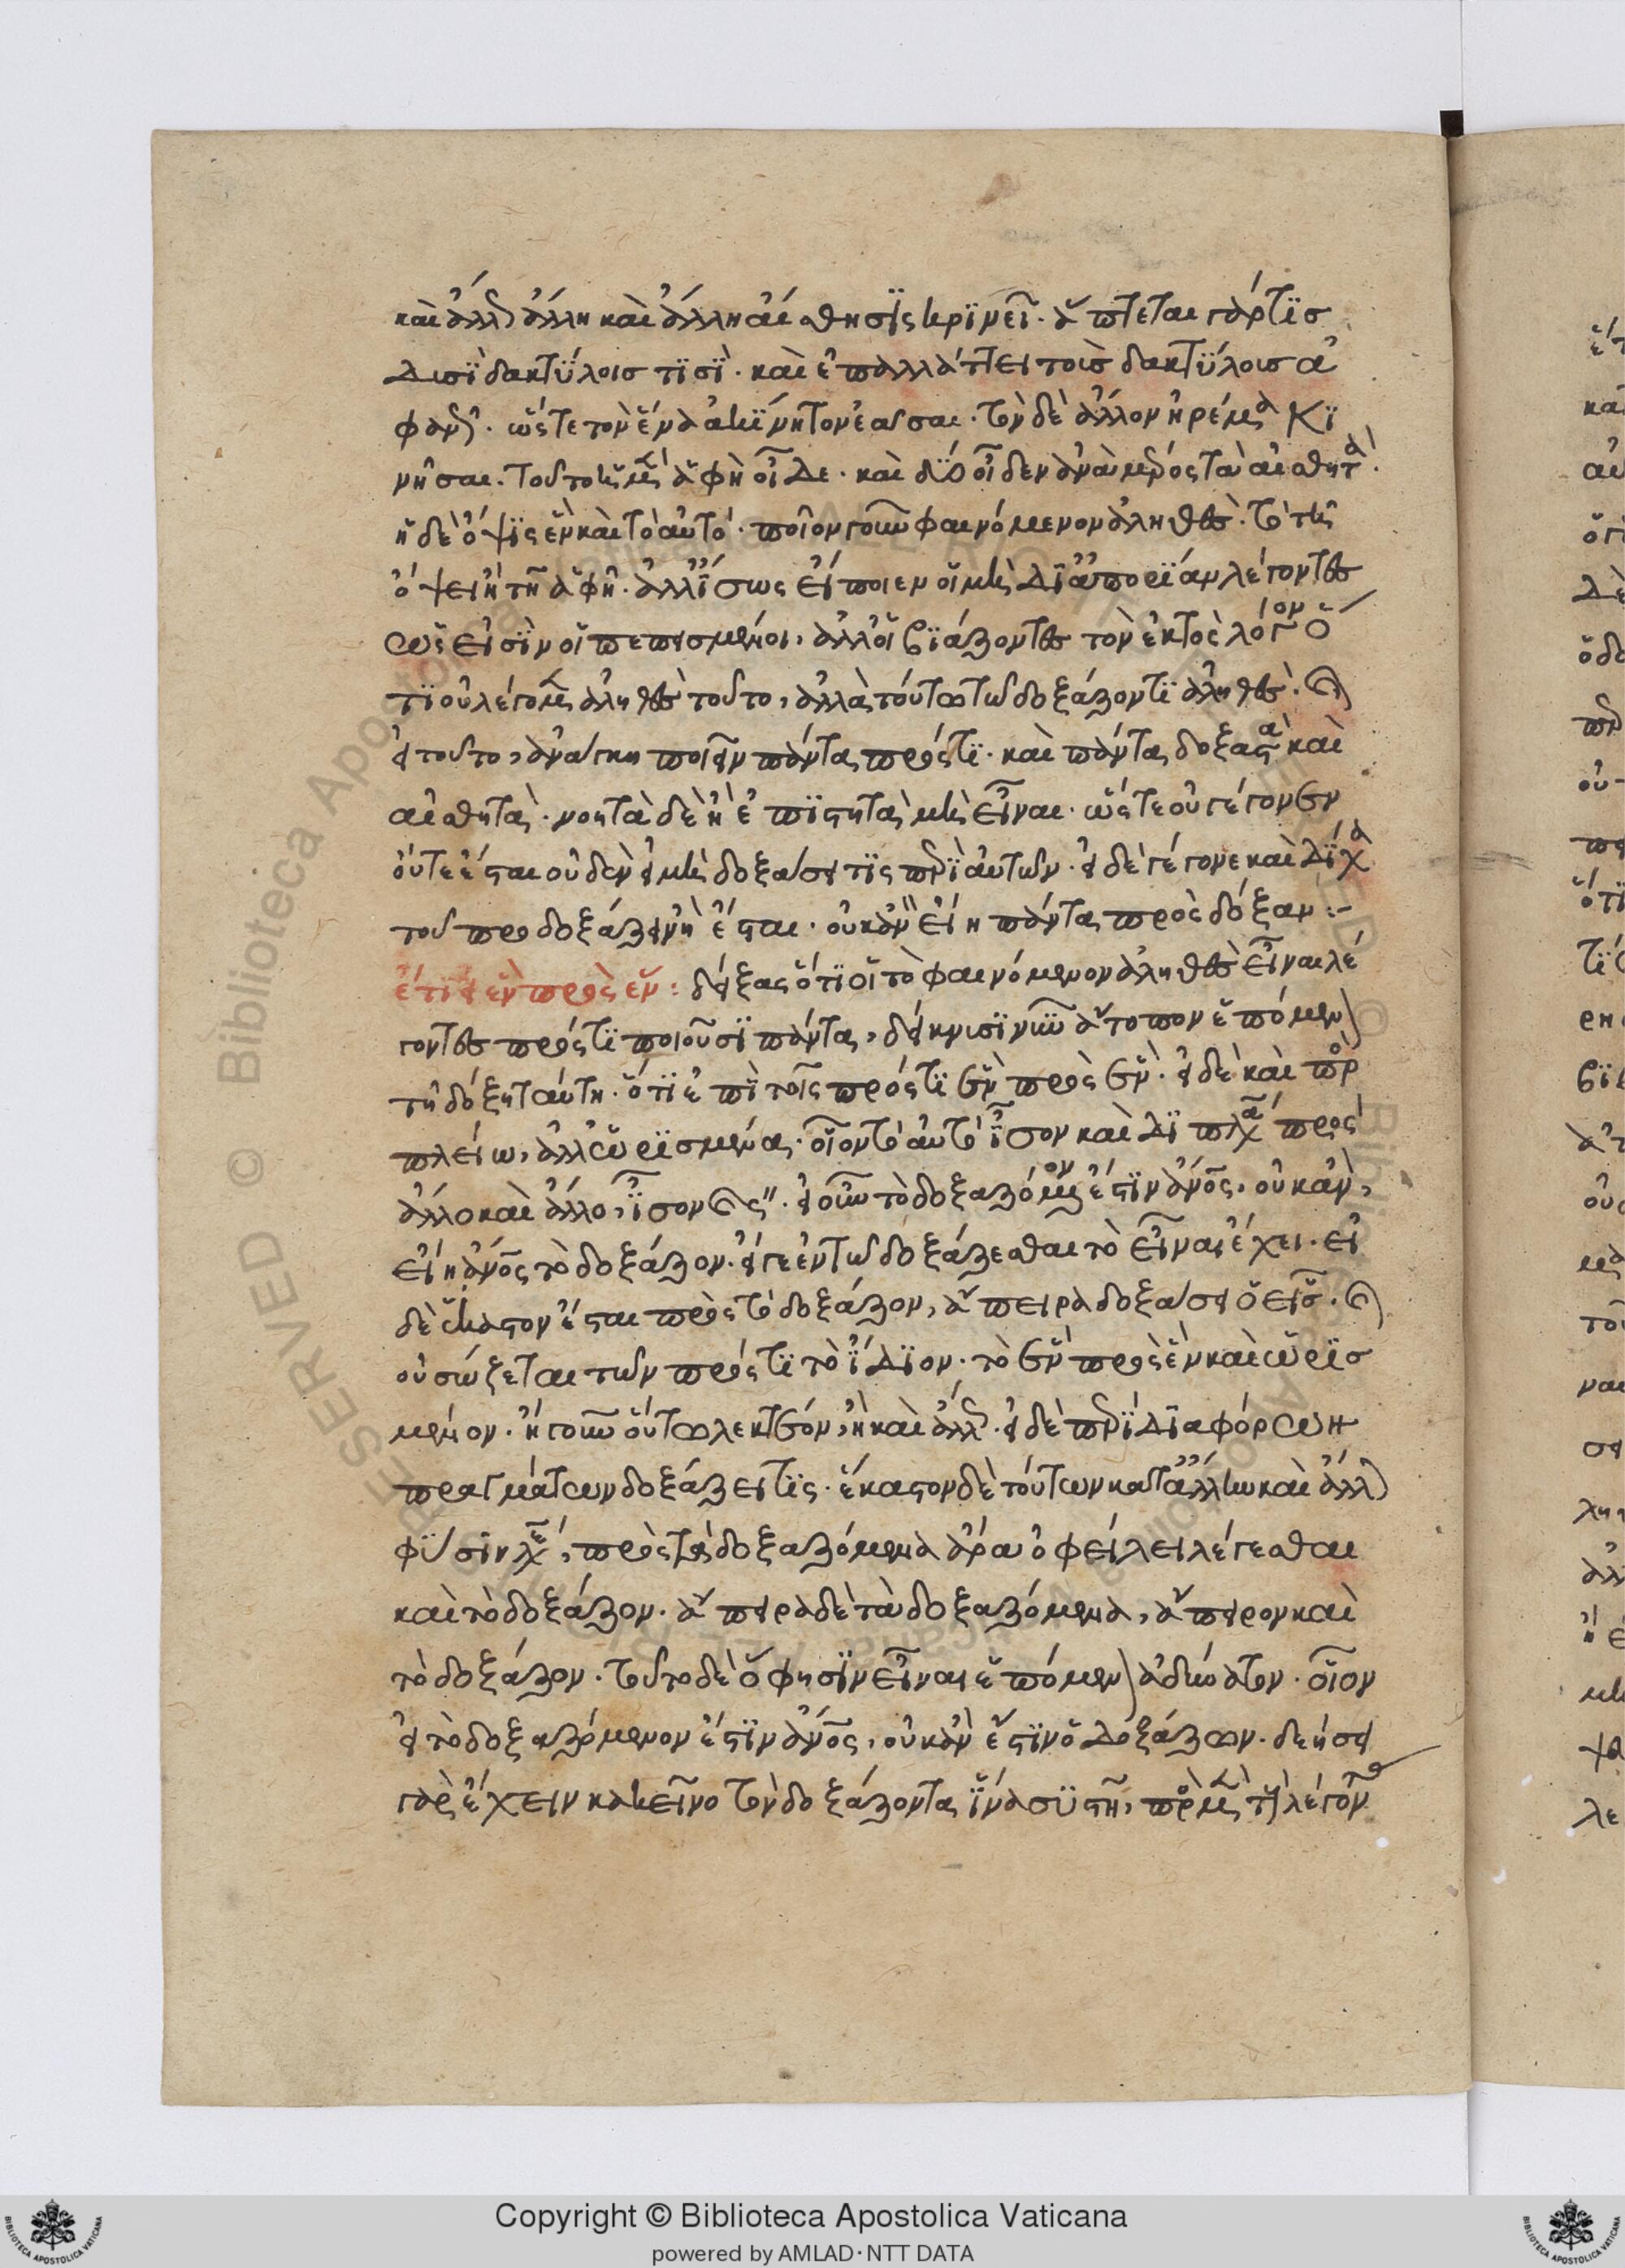 καὶ ἄλλως ἄλλη καὶ ἄλλη αἴσθησϊς κρϊνεῖ. ἅπτεται γάρ τϊσ
δυσϊ δακτύλοισ τϊσϊ. καὶ ἐπαλλάττει τοῖσ δακτύλοισ ἀ
φὴν. ὥστε τὸν ἕνα ἀκϊνητον ἐᾶσαι. τὸν δὲ ἄλλον ἠρέμα κϊ
νῆσαι. τοῦτο ἡ μὲν ἁφὴ οἶδε. καὶ δύο οἶδεν ἀνὰ μέρος τὰ αἰσθητὰ.
ἡ δὲ ὄψϊς ἓν καὶ τὸ αὐτὸ. ποῖον γοῦν φαινόμενον ἀληθὲς. τὸ τῇ
ὄψει ἢ τῇ ἁφῇ. ἀλλ' ἴσως εἴποιεν οἱ μὴ δϊ ἀπορϊαν λέγοντες
ὡς εἰσϊν οἱ πεπεισμένοι, ἀλλ' οἱ βϊάζοντες τὸν ἐκτὸς λόγον ὅ
τϊ οὐ λέγομεν ἀληθὲς τοῦτο, ἀλλὰ τούτω τῶ δοξάζοντϊ ἀληθὲς.
εἰ τοῦτο, ἀνάγκη ποιεῖν πάντα πρός τϊ. καὶ πάντα δοξαστὰ καὶ
αἰσθητὰ. νοητὰ δὲ ἢ ἐπϊστητὰ μὴ εἶναι. ὥστε οὐ γέγονεν
οὔτε ἔσται οὐδὲν εἰ μὴ δοξάσει τϊς περὶ αὐτῶν. εἰ δὲ γέγονε καὶ δϊχα
τοῦ προδοξάζειν ἢ ἔσται. οὐκ ἂν εἴη πάντα πρὸς δόξαν:-
ἔτϊ εἰ ἓν πρὸς ἕν: δείξας ὅτϊ οἱ τὸ φαινόμενον ἀληθὲς εἶναι λέ
γοντες πρός τϊ ποιοῦσϊ πάντα, δείκνυσϊ νῦν ἄτοπον ἑπόμενον
τῇ δόξῃ ταύτῃ. ὅτϊ ἐπὶ τοῖς πρός τϊ ἓν πρὸς ἓν. εἰ δὲ καὶ πρὸς
πλείω, ἀλλ' ὡρϊσμένα. οἷον τὸ αὐτὸ ἴσον καὶ δϊπλάσϊον πρὸς
ἄλλο καὶ ἄλλο, ἴσον. εἰ οὖν τὸ δοξαζόμενον ἐστϊν ἄνος, οὐκ ἂν,
εἴη ἄνος τὸ δοξάζον. εἴγε ἐν τῶ δοξάζεσθαι τὸ εἶναι ἔχει. εἰ
δὲ ἕκαστον ἔσται πρὸς τὸ δοξάζον, ἄπειρα δοξάσει ὁ εἷς.
οὐ σώζεται τῶν πρός τϊ τὸ ἴδϊον. τὸ ἓν πρὸς ἓν καὶ ὡρϊσ
μένον. ἢ γοῦν οὕτω λεκτέον, ἢ καὶ ἄλλως. εἰ δὲ περὶ δϊαφόρων
πραγμάτων δοξάζει τϊς. ἕκαστον δὲ τούτων κατ' ἄλλην καὶ ἄλλην
φύσϊν ἔχει, πρὸς τὰ δοξαζόμενα ἄρα ὀφείλει λέγεσθαι
καὶ τὸ δοξάζον. ἄπειρα δὲ τὰ δοξαζόμενα, ἄπειρον καὶ
τὸ δοξάζον. τοῦτο δὲ ὅ φησϊν εἶναι ἑπόμενον ἀδύνατον. οἷον
εἰ τὸ δοξαζόμενον ἐστϊν ἄνος, οὐκ ἂν ἔστϊν ὁ δοξάζων. δεήσει
γὰρ ἔχειν κἀκεῖνο τὸν δοξάζοντα ἵνα συστῇ, λέγον